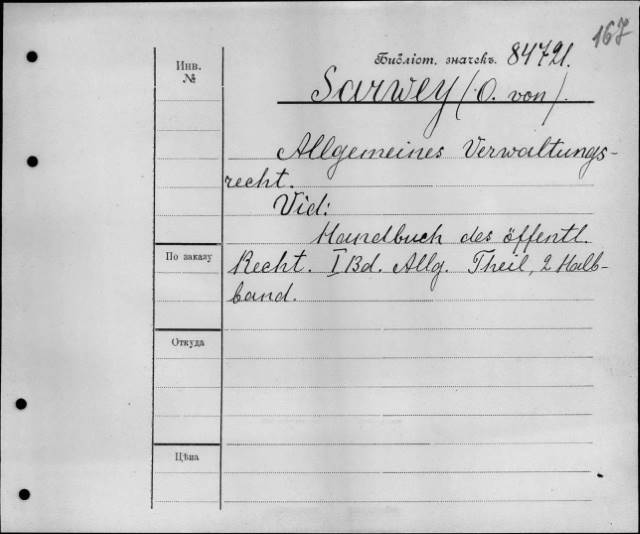 167
Библіот. значекъ. 84721.
Инв.
№
Sarwey (O. von).
Allgemeines Verwaltungs-
recht.
Vid:
Handbuch des öffentl.
По заказу
Recht. I Bd. Allg. Theil, 2 Halb-
band.
Откуда
Цѣна